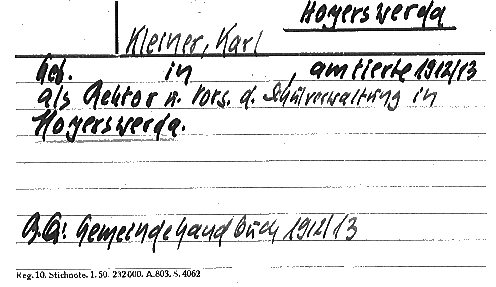 Hoyerswerda
Kleiner, Karl
Geb. in , amtierte 1912/13
als Rektor u. Vors. d. Schulverwaltung in
Hoyerswerda.
B.Q: Gemeindehandbuch 1912/13
Reg. 10. Stichnote. 1. 50. 232000. A.803. S. 4062